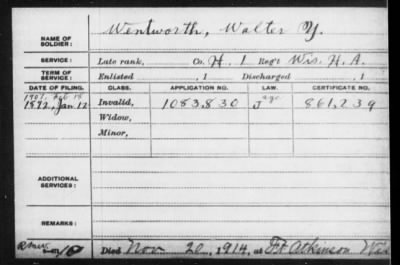 NAME OF SOLDIER: Wentworth, Walter Y.
SERVICE: Late rank, Co. H. 1 Reg't Wis. H. A.
TERM OF SERVICE: Enlisted , 1 Discharged , 1
DATE OF FILING. CLASS. APPLICATION NO. LAW. CERTIFICATE NO.
1907, Feb 18
1892, Jan 12 Invalid, 1083,830 J age 861,239
Widow,
Minor,
ADDITIONAL SERVICES:
REMARKS:
Died Nov 20, 1914, at Ft Atkinson Wis